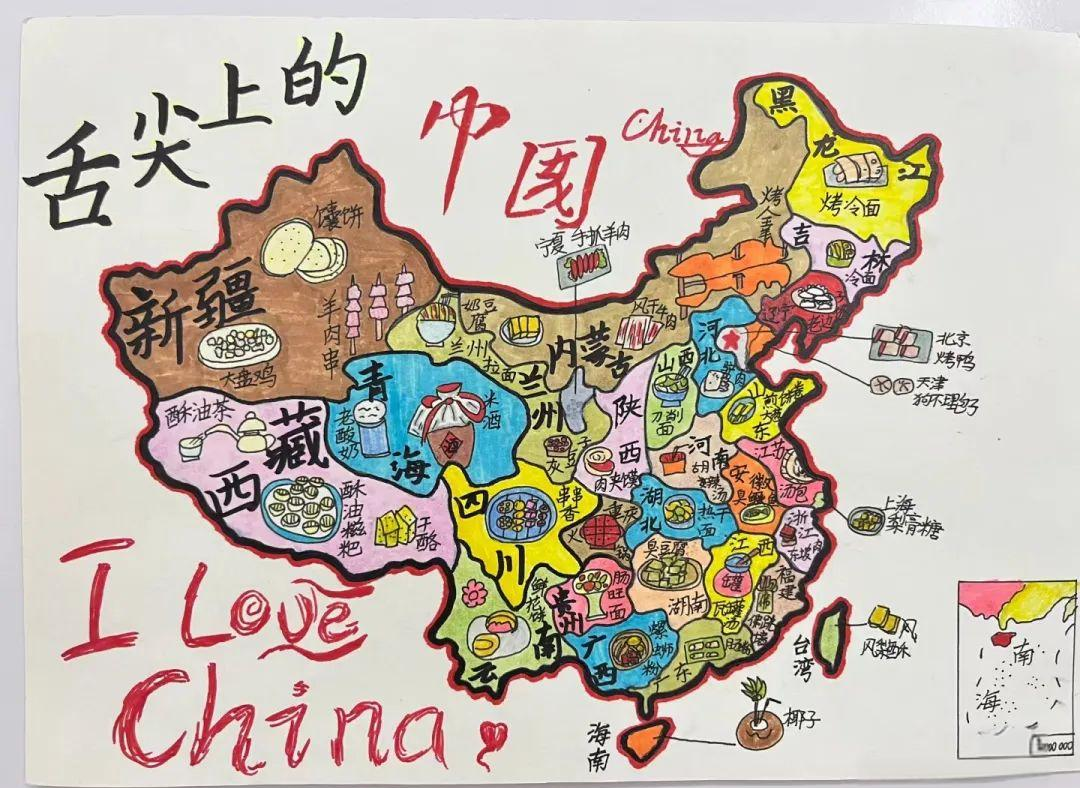 舌尖上的
中国
China
黑龙江
烤冷面
吉林
冷面
烤全羊
辽宁
宁夏 手抓羊肉
馕饼
新疆
羊肉串
大盘鸡
奶豆腐
兰州拉面
风干牛肉
内蒙古
河北
驴肉
北京
烤鸭
天津
狗不理包子
青海
老酸奶
米酒
酒
兰州
灰豆子
陕西
肉夹馍
山西
刀削面
山东
煎饼卷大葱
酥油茶
西藏
酥油糍粑
干酪
四川
串串香
重庆
火锅
河南
胡辣汤
江苏
汤包
安徽
臭鳜鱼
湖北
热干面
上海
梨膏糖
浙江
东坡肉
江西
瓦罐汤
罐
臭豆腐
湖南
福建
佛跳墙
鲜花饼
云南
贵州
肠旺面
广西
螺蛳粉
广东
肠粉
台湾
凤梨酥
海南
椰子
南海
I Love
China